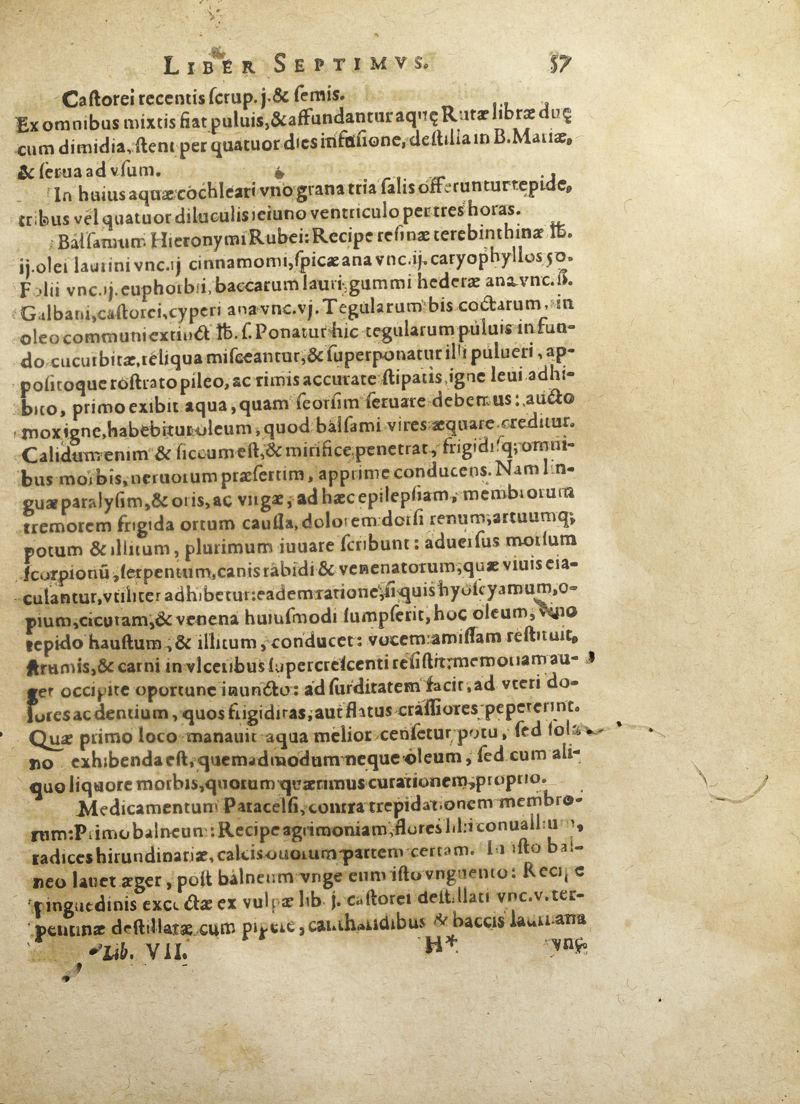 LIBER SEPTIMVS. 57
Castorei recentis scrup. j. & semis.
Ex omnibus mixtis fiat puluis, & affundantur aquę Rutæ libræ duę
cum dimidia, stent per quatuor dies infusione, destilla in B. Mariæ,
& serua ad vsum.
In huius aquæ cochleari vno grana tria salis offeruntur tepide,
tribus vel quatuor diluculis ieiuno ventriculo per tres horas.
Balsamum Hieronymi Rubei: Recipe resinæ terebinthinæ ℔.
ij. olei laurini vnc. ij cinnamomi, spicæ ana vnc. ij. caryophyllos 50.
Folii vnc. ij. euphorbii, baccarum lauri, gummi hederæ ana vnc. ß.
Galbani, castorei, cyperi ana vnc. vj. Tegularum bis coctarum, in
oleo communi extinct ℔. ſ. Ponatur hic tegularum puluis in fun-
do cucurbitæ, reliqua misceantur, & superponatur illi pulueri, ap-
positoque rostrato pileo, ac rimis accurate stipatis, igne leui adhi-
bito, primo exibit aqua, quam seorsim seruare debemus: aucto
mox igne, habebitur oleum, quod balsami vires æquare creditur.
Calidum enim & siccum est, & mirifice penetrat, frigidisq; omni-
bus morbis, neruorum præsertim, apprime conducens. Nam lin-
guæ paralysim, & oris, ac virgæ, ad hæc epilepsiam, membrorum
tremorem frigida ortum caussa, dolorem dorsi renum, artuumq;
potum & illitum, plurimum iuuare scribunt: aduersus morsum
scorpionū, serpentum, canis rabidi & venenatorum, quæ virus eia-
culantur, vtiliter adhibetur: eadem ratione, si quis hyoscyamum, o-
pium, cicutam, & venena huiusmodi sumpserit, hoc oleum, vino
tepido haustum, & illitum, conducet: vocem amissam restituit,
strumis, & carni in vlceribus supercrescenti resistit; memoriam au-
get occipite oportune inuncto: ad surditatem facit, ad vteri do-
lores ac dentium, quos frigiditas, aut flatus crassiores pepererint.
Quæ primo loco manauit aqua melior censetur potu, sed sola
no exhibenda est, quemadmodum neque oleum, sed cum ali-
quo liquore morbis, quorum quærimus curationem, proprio.
Medicamentum Paracelsi, contra trepidationem membro-
rum: Primo balneum: Recipe agrimoniam, flores lilii conuallium,
radices hirundinariæ, calcis ouorum partem certam. In isto bal-
neo lauet æger, post balneum vnge eum isto vnguento: Recipe
pinguedinis exctæ ex vulpæ lib j. castorei destillati vnc. v. ter-
pentinæ destillatæ cum pipere, cantharidibus & baccis lauri ana
Lib. VII. H* vnc.